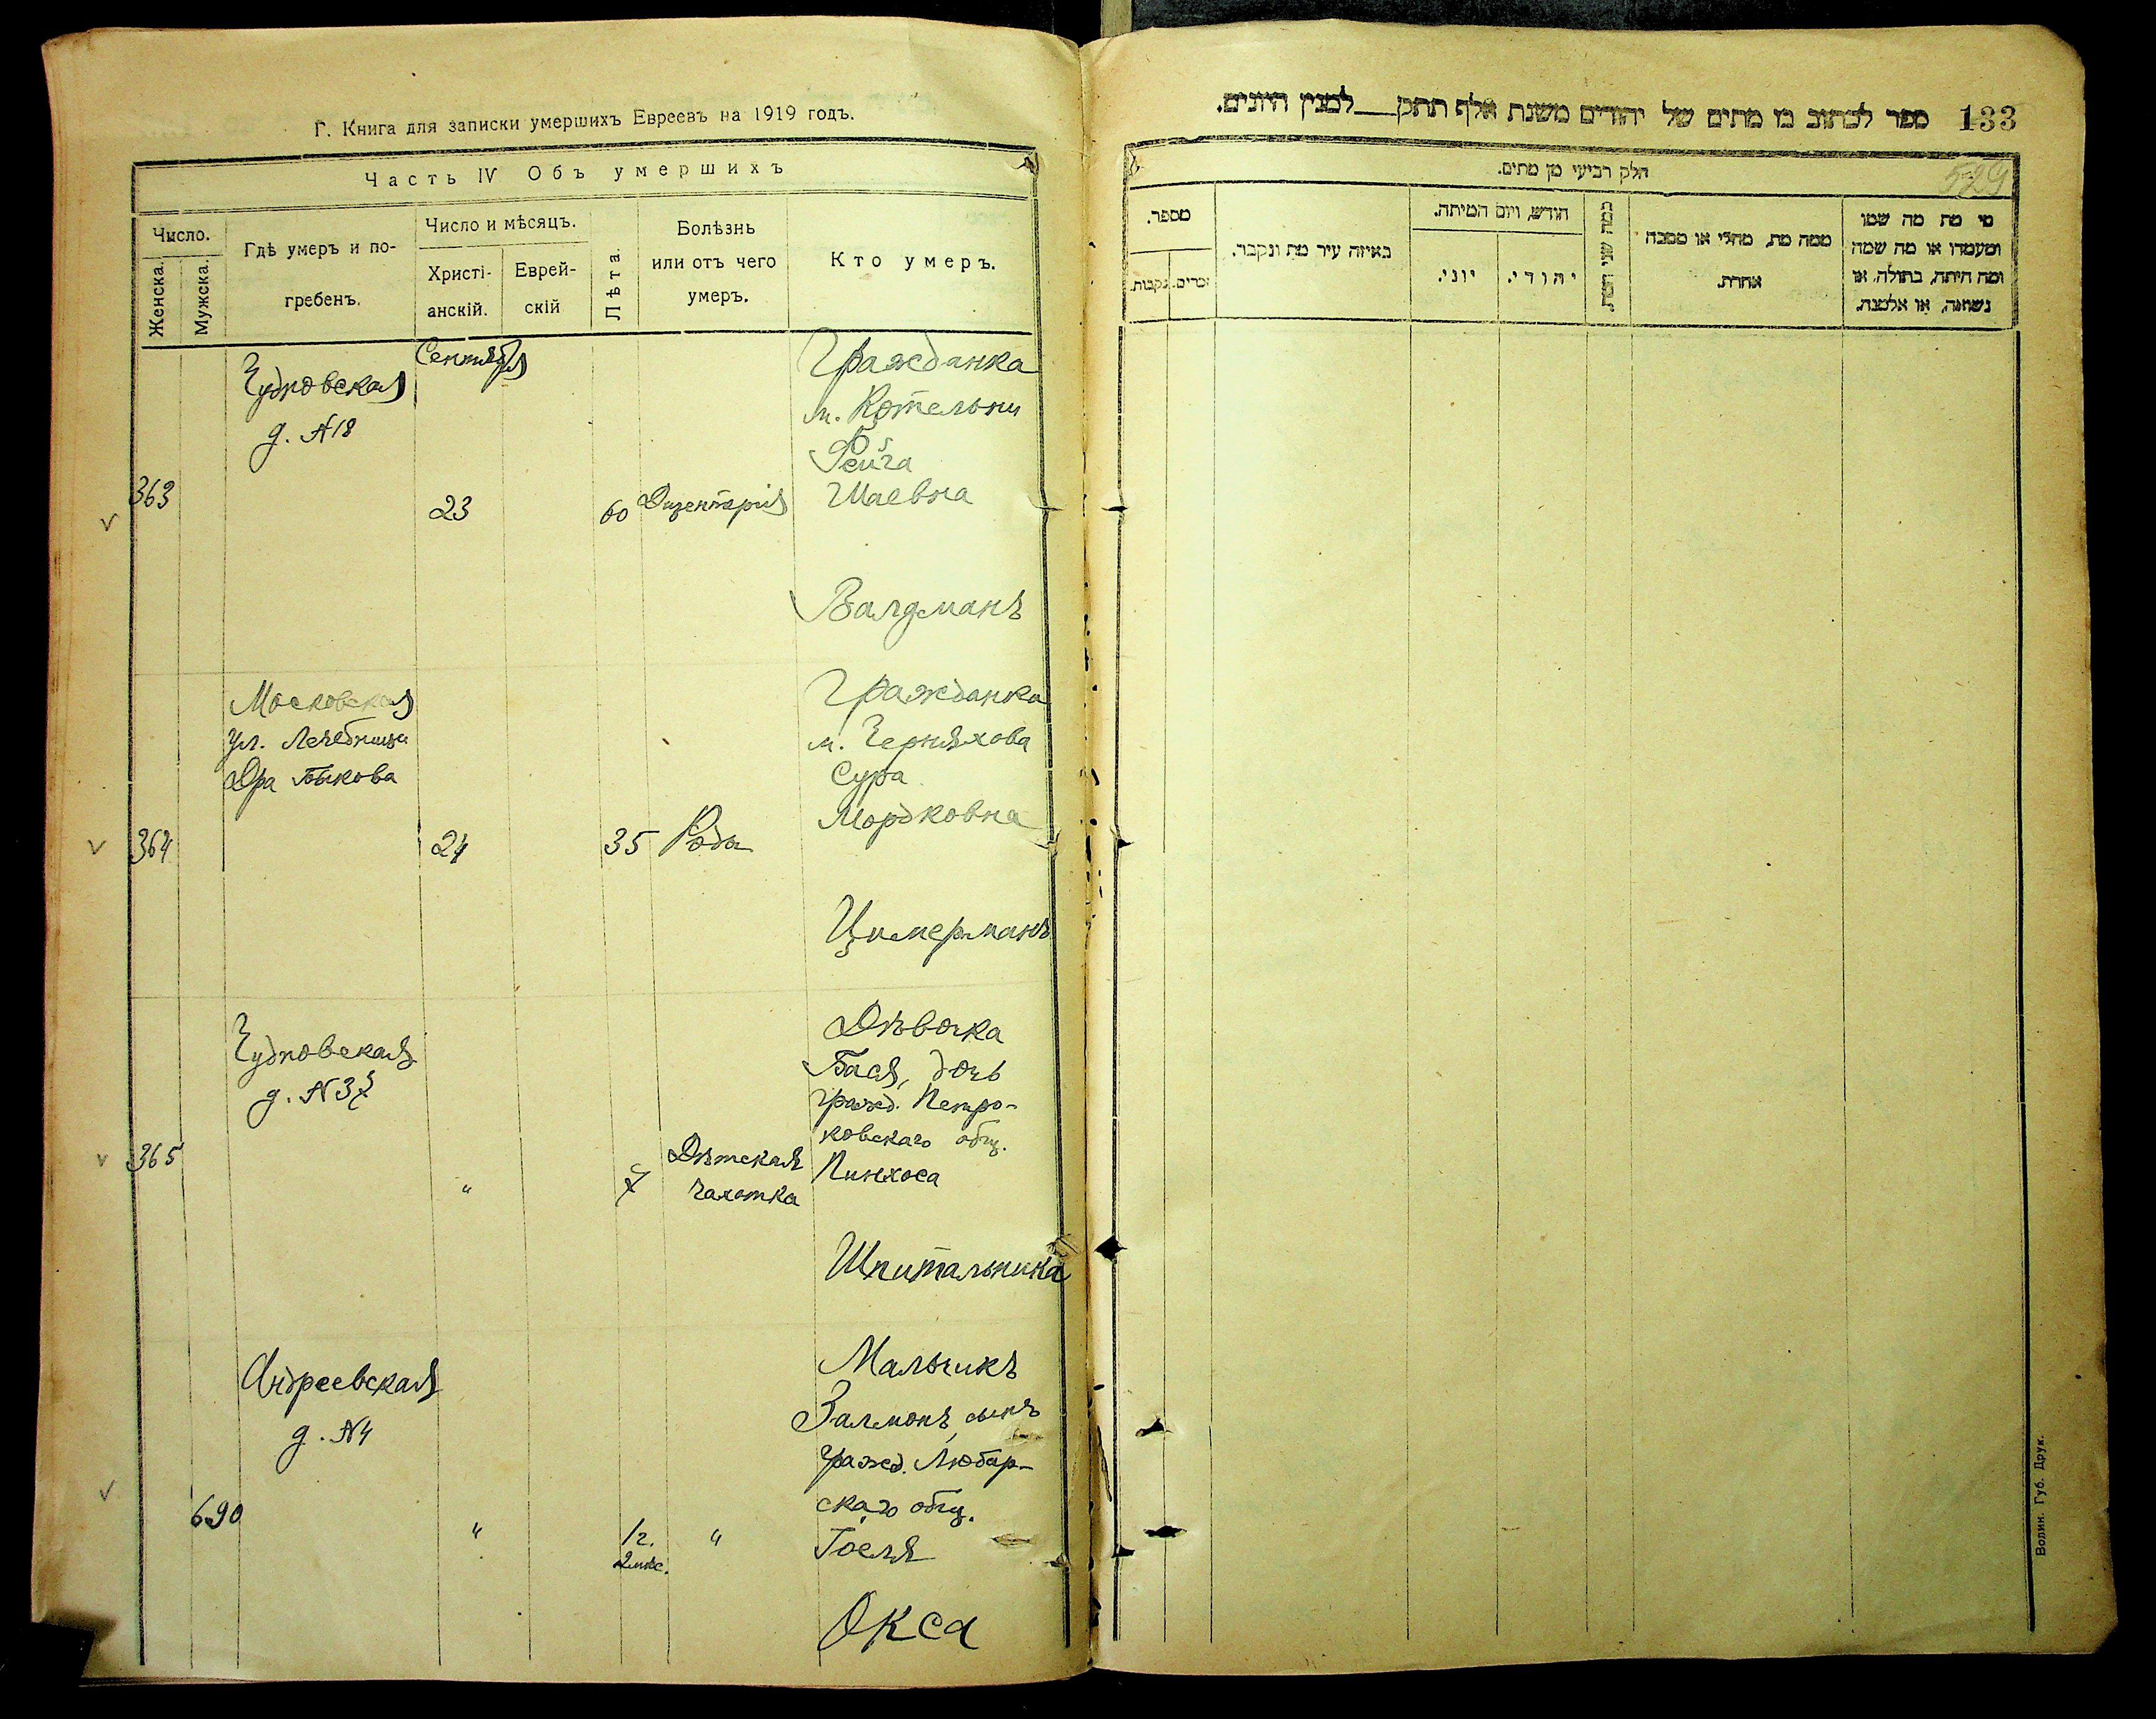 Г. Книга для записки умершихъ Евреевъ на 1919 годъ.
Часть IV Объ умершихъ
Число.
Женска.
Мужска.
Гдѣ умеръ и по-
гребенъ.
Число и мѣсяцъ.
Христі-
анскій.
Еврей-
скій
Лѣта.
Болѣзнь
или отъ чего
умеръ.
Кто умеръ.
363
Чудновская
д. №18
Сентября
23
60
Дизентерія
Гражданка
м. Котельни
Рейза
Шаевна
Валдманъ
364
Московская
ул. Лечебница
Дра Быкова
24
35
Рода
Гражданка
м. Черняхова
Сура
Мордковна
Цимерманъ
365
Чудновская
д. №37
"
7
Дѣтская
чахотка
Дѣвочка
Бася, дочь
гражд. Петро-
ковскаго общ.
Пинхоса
Шпитальника
690
Андреевская
д. №4
"
1г.
2мѣс.
"
Мальчикъ
Залмонъ, сынъ
гражд. Любар-
скаго общ.
Гоеля
Окса
133
ספר לכתוב בו מתים של יהודים משנת אלף תתק__למנין היונים.
529
חלק רביעי מן מתים.
מספר.
זכרים.
נקבות.
באיזה עיר מת ונקבר.
חודש ויום המיתה.
יוני.
יהודי.
כמה שני המת.
ממה מת, מחלי או מסבה
אחרת.
מי מת מה שמו
ומעמדו או מה שמה
ומה היתה, בתולה, או
נשואה, או אלמנה.
Волин. Губ. Друк.